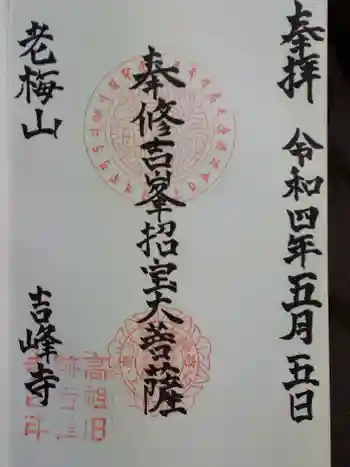 奉拝 令和四年五月五日
奉修吉峯招宝大菩薩
老梅山 吉峰寺
高祖旧